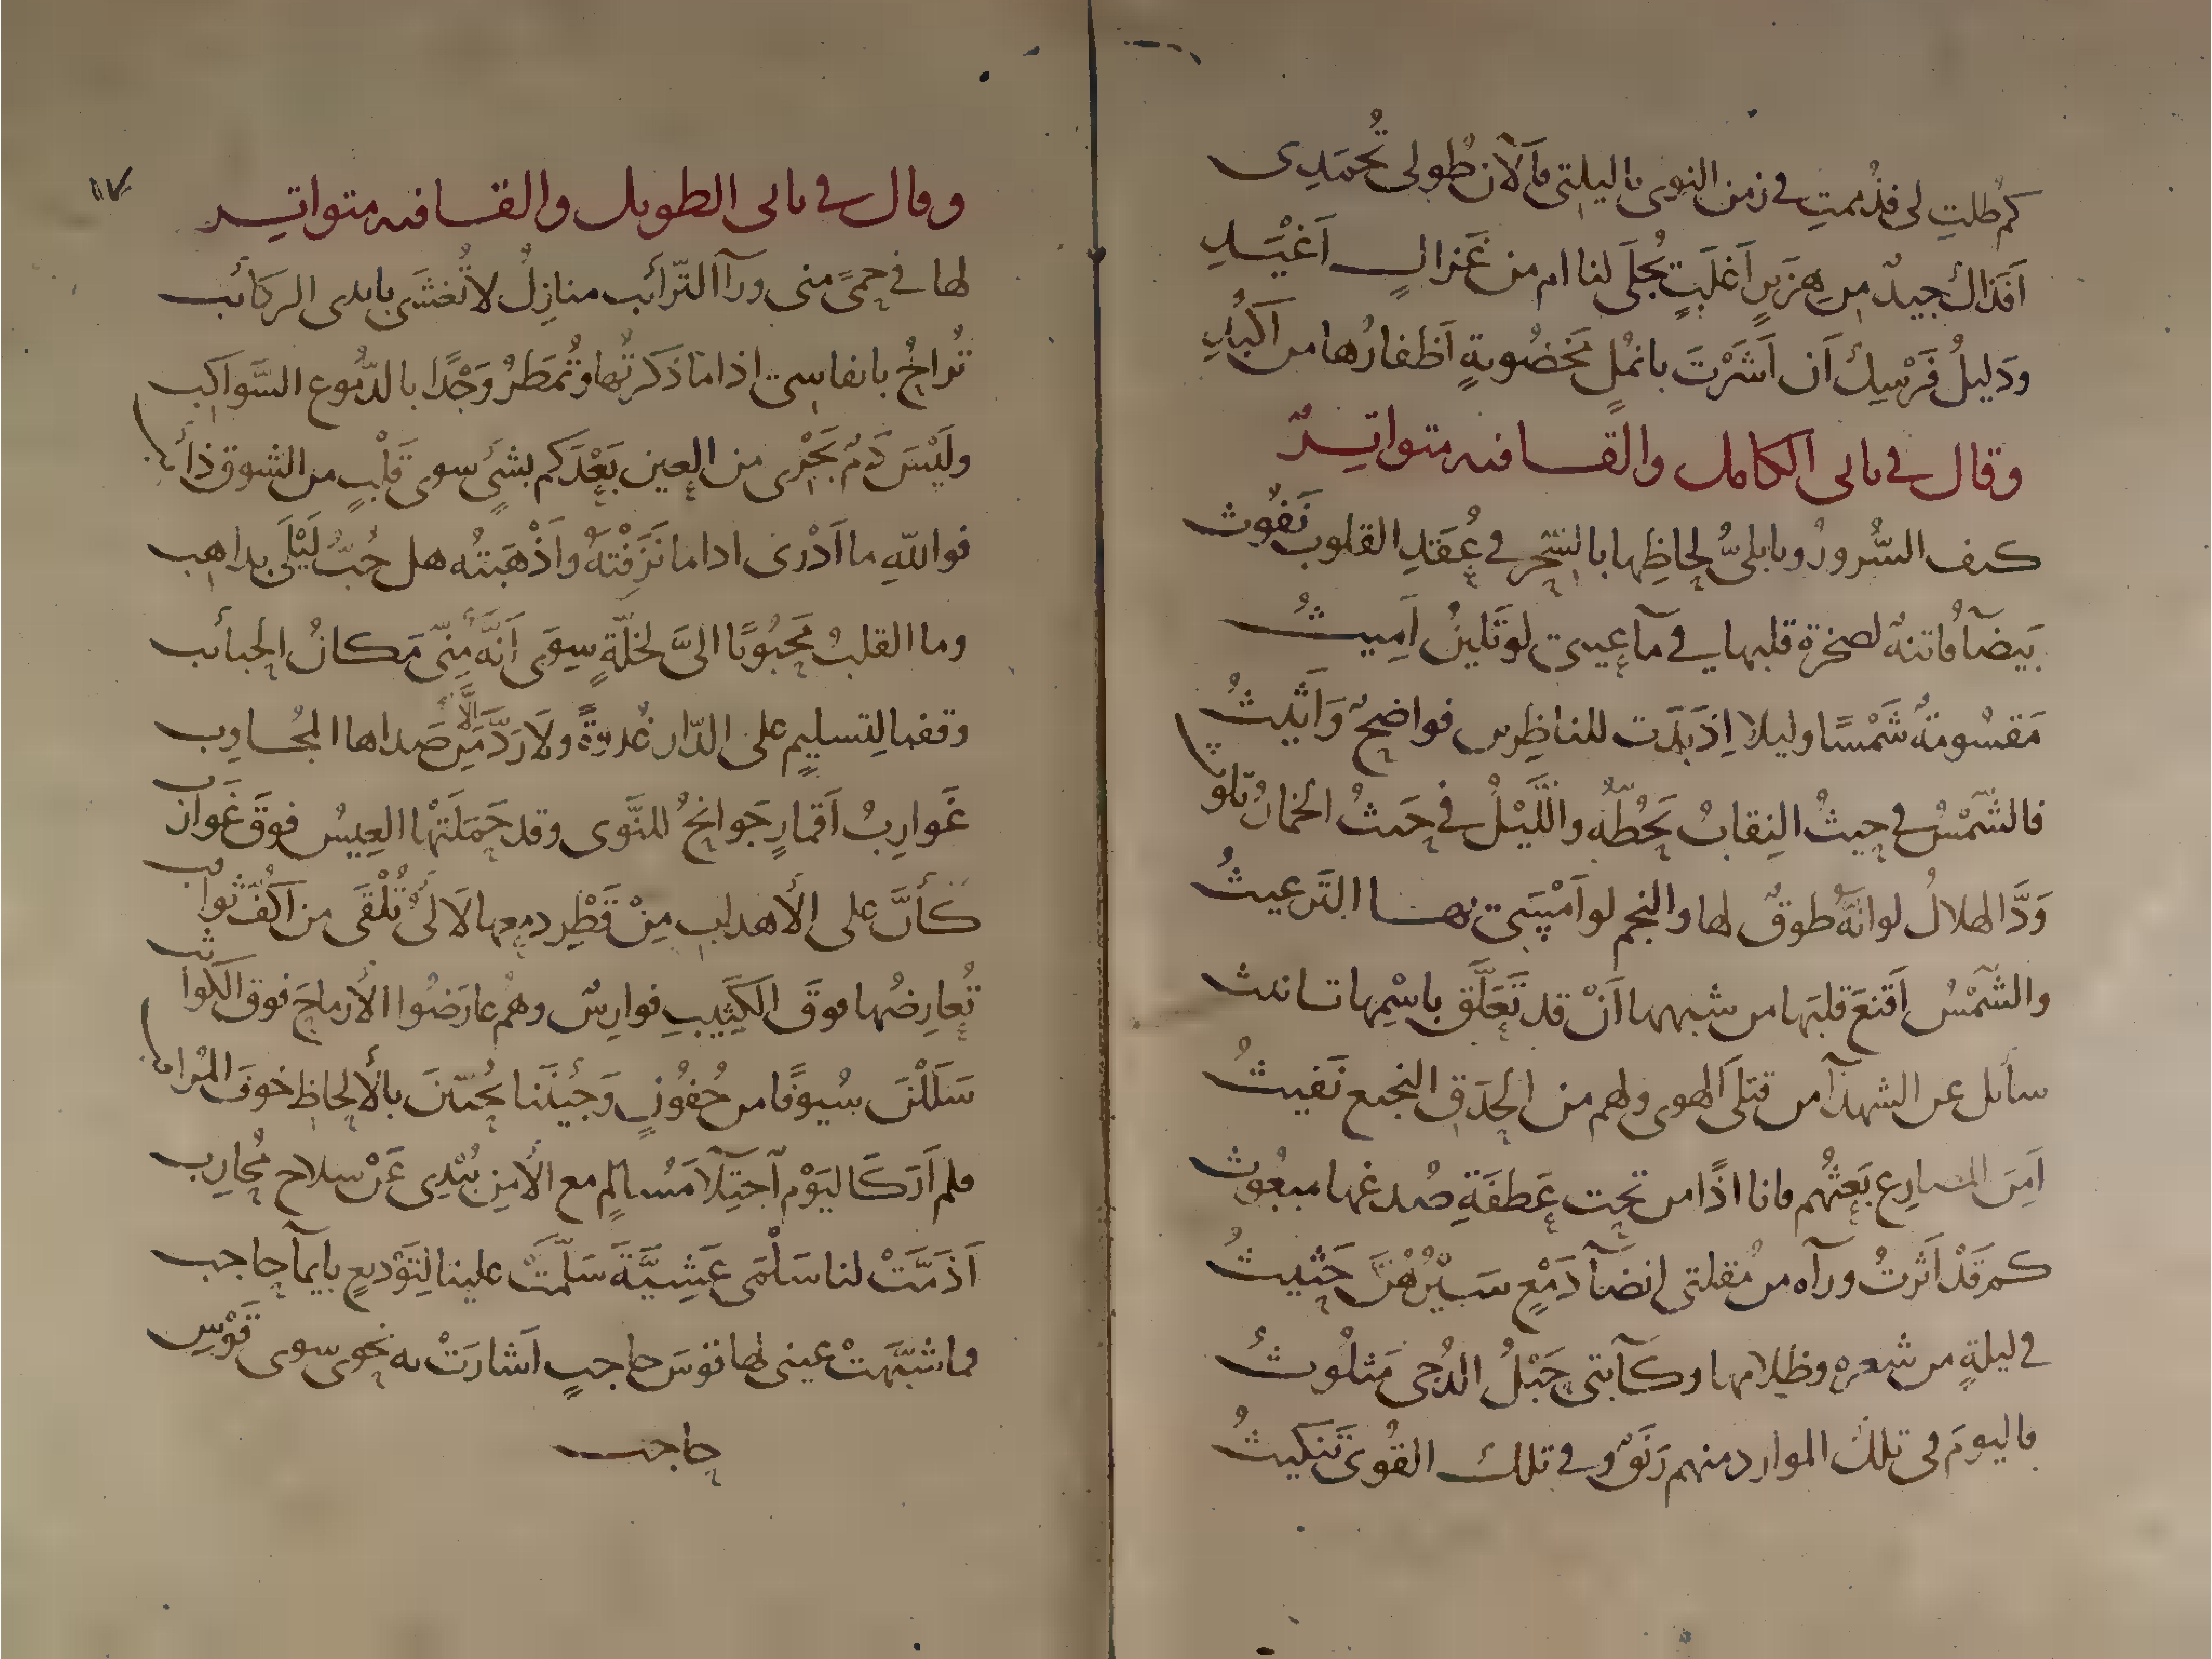 كم طلتِ لى فذُممتِ فى زمن النوى ياليلتى فآلآن طولى تُحمَدِى
اَفَذاك جيدٌ من هِزَبرٍ اَغلَبٍ يُجلَى لنا ام من غَزالٍ اَغْيَدِ
ودَليلُ فَرْسِكَ اَن اَشَرْتَ بانمُلٍ مَخضُوبةٍ اَظفارُها من اَكبُدِ
وقال فى ثانى الكامل والقافيه متواتِرٌ
كيف السُّرورُ وبابلىُّ لحاظِها بالسِّحْرِ فى عُقَدِ القلوبِ نَفُوث
بَيضآ فاتنةٌ لصخرة قلبها فى مآ عينى لو تَلينُ اَمِيثُ
مَقسُومةٌ شَمْسًا وليلا اِذ بَدَت للناظِرين فواضحٌ وَاَثيثُ
فالشَّمْسُ فى حيثُ النِقابُ تَحُطّهُ والَّليْلُ فى حَيثُ الخمارُ تلوثُ
وَدَّ الهلالُ لو انّهُ طوقٌ لها والنجم لو اَمْسَى بها الترعيثُ
والشَّمْسُ اَقنَعَ قلبَها من شبهها اَنْ قد تَعَلَّق باسْمِها تانيث
سائل عن الشهدآ من قتلَى الهوى ولهم من الحَدَقِ النجيع نَفيثُ
اَمِنَ المصارِع بَعثُهم فانا اذًا من تحت عَطفَةِ صُدغها مبعُوث
كم قَدْ اَثرتُ ورآه من مُقلتى انضَآ دَمْعٍ سَيْرُهُنَّ حَثِيثُ
فى ليلةٍ من شعره وظلامها وكآبتى حَبْلُ الدُجى مَثلُوثُ
فاليومَ فى تلك الموارد منهم رَنَقٌ وفى تلك القُوَى تَنكيثُ
وقال فى ثانى الطويل والقافيه متواتِر
لها فى حِمىً منى ورآ التّرائب منازِلُ لا تُغشَى بايدى الركائب
تُراحُ بانفاسى اذا ما ذكرتُها وتُمطَرُ وَجْدًا بالدُّموع السَّواكب
ولَيْسَ دَمٌ يَجْرى من العين بَعْدَكم بشىءٍ سوى قَلْبٍ من الشوق ذائب
فواللّهِ ما اَدْرى اذا ما نَزَفْتهُ وَاَذْهَبتُه هل حُبُّ لَيْلَى بذاهب
وما القلبُ مَحبُوبًا الىَّ لخلّةٍ سِوَى اَنَّهُ مِنّى مَكانُ الحبائب
وقفنا لِتسليمٍ على الدّار غُدوَةً ولا رَدَّ اِلّا مِن صَداها المجُاوِب
غَوارِبُ اَقمارٍ جَوانحُ للنَّوى وقد حَمَلَتْها العِيسُ فوقَ غَوارب
كأنَّ على الأهدابِ مِنْ قَطْرِ دمعها لآلىُ تُلْقَى من اَكُفِّ ثواقب
تُعارِضُها فوقَ الكَثِيبِ فوارِسٌ وهُم عارَضُوا الأرماحَ فوق الكواثب
سَلَلْنَ سُيوفًا من جُفُونٍ وَجئنَنا يُحيّينَ بالألحاظِ خوفَ المُراقب
فلم اَرَ كَاليَوْم آجتِلآ مُسالمٍ مع الأمنِ يُبْدِى عَنْ سلاح مُحارِب
اَذَمَّتْ لنا سَلْمَى عَشِيَّةَ سَلّمَتْ علينا لِتَوْديعٍ بايمآ حاجب
فما شبَّهتْ عينى لها قوسَ حاجبٍ اَشارَتْ به نحوى سوى قَوْسِ
حاجب